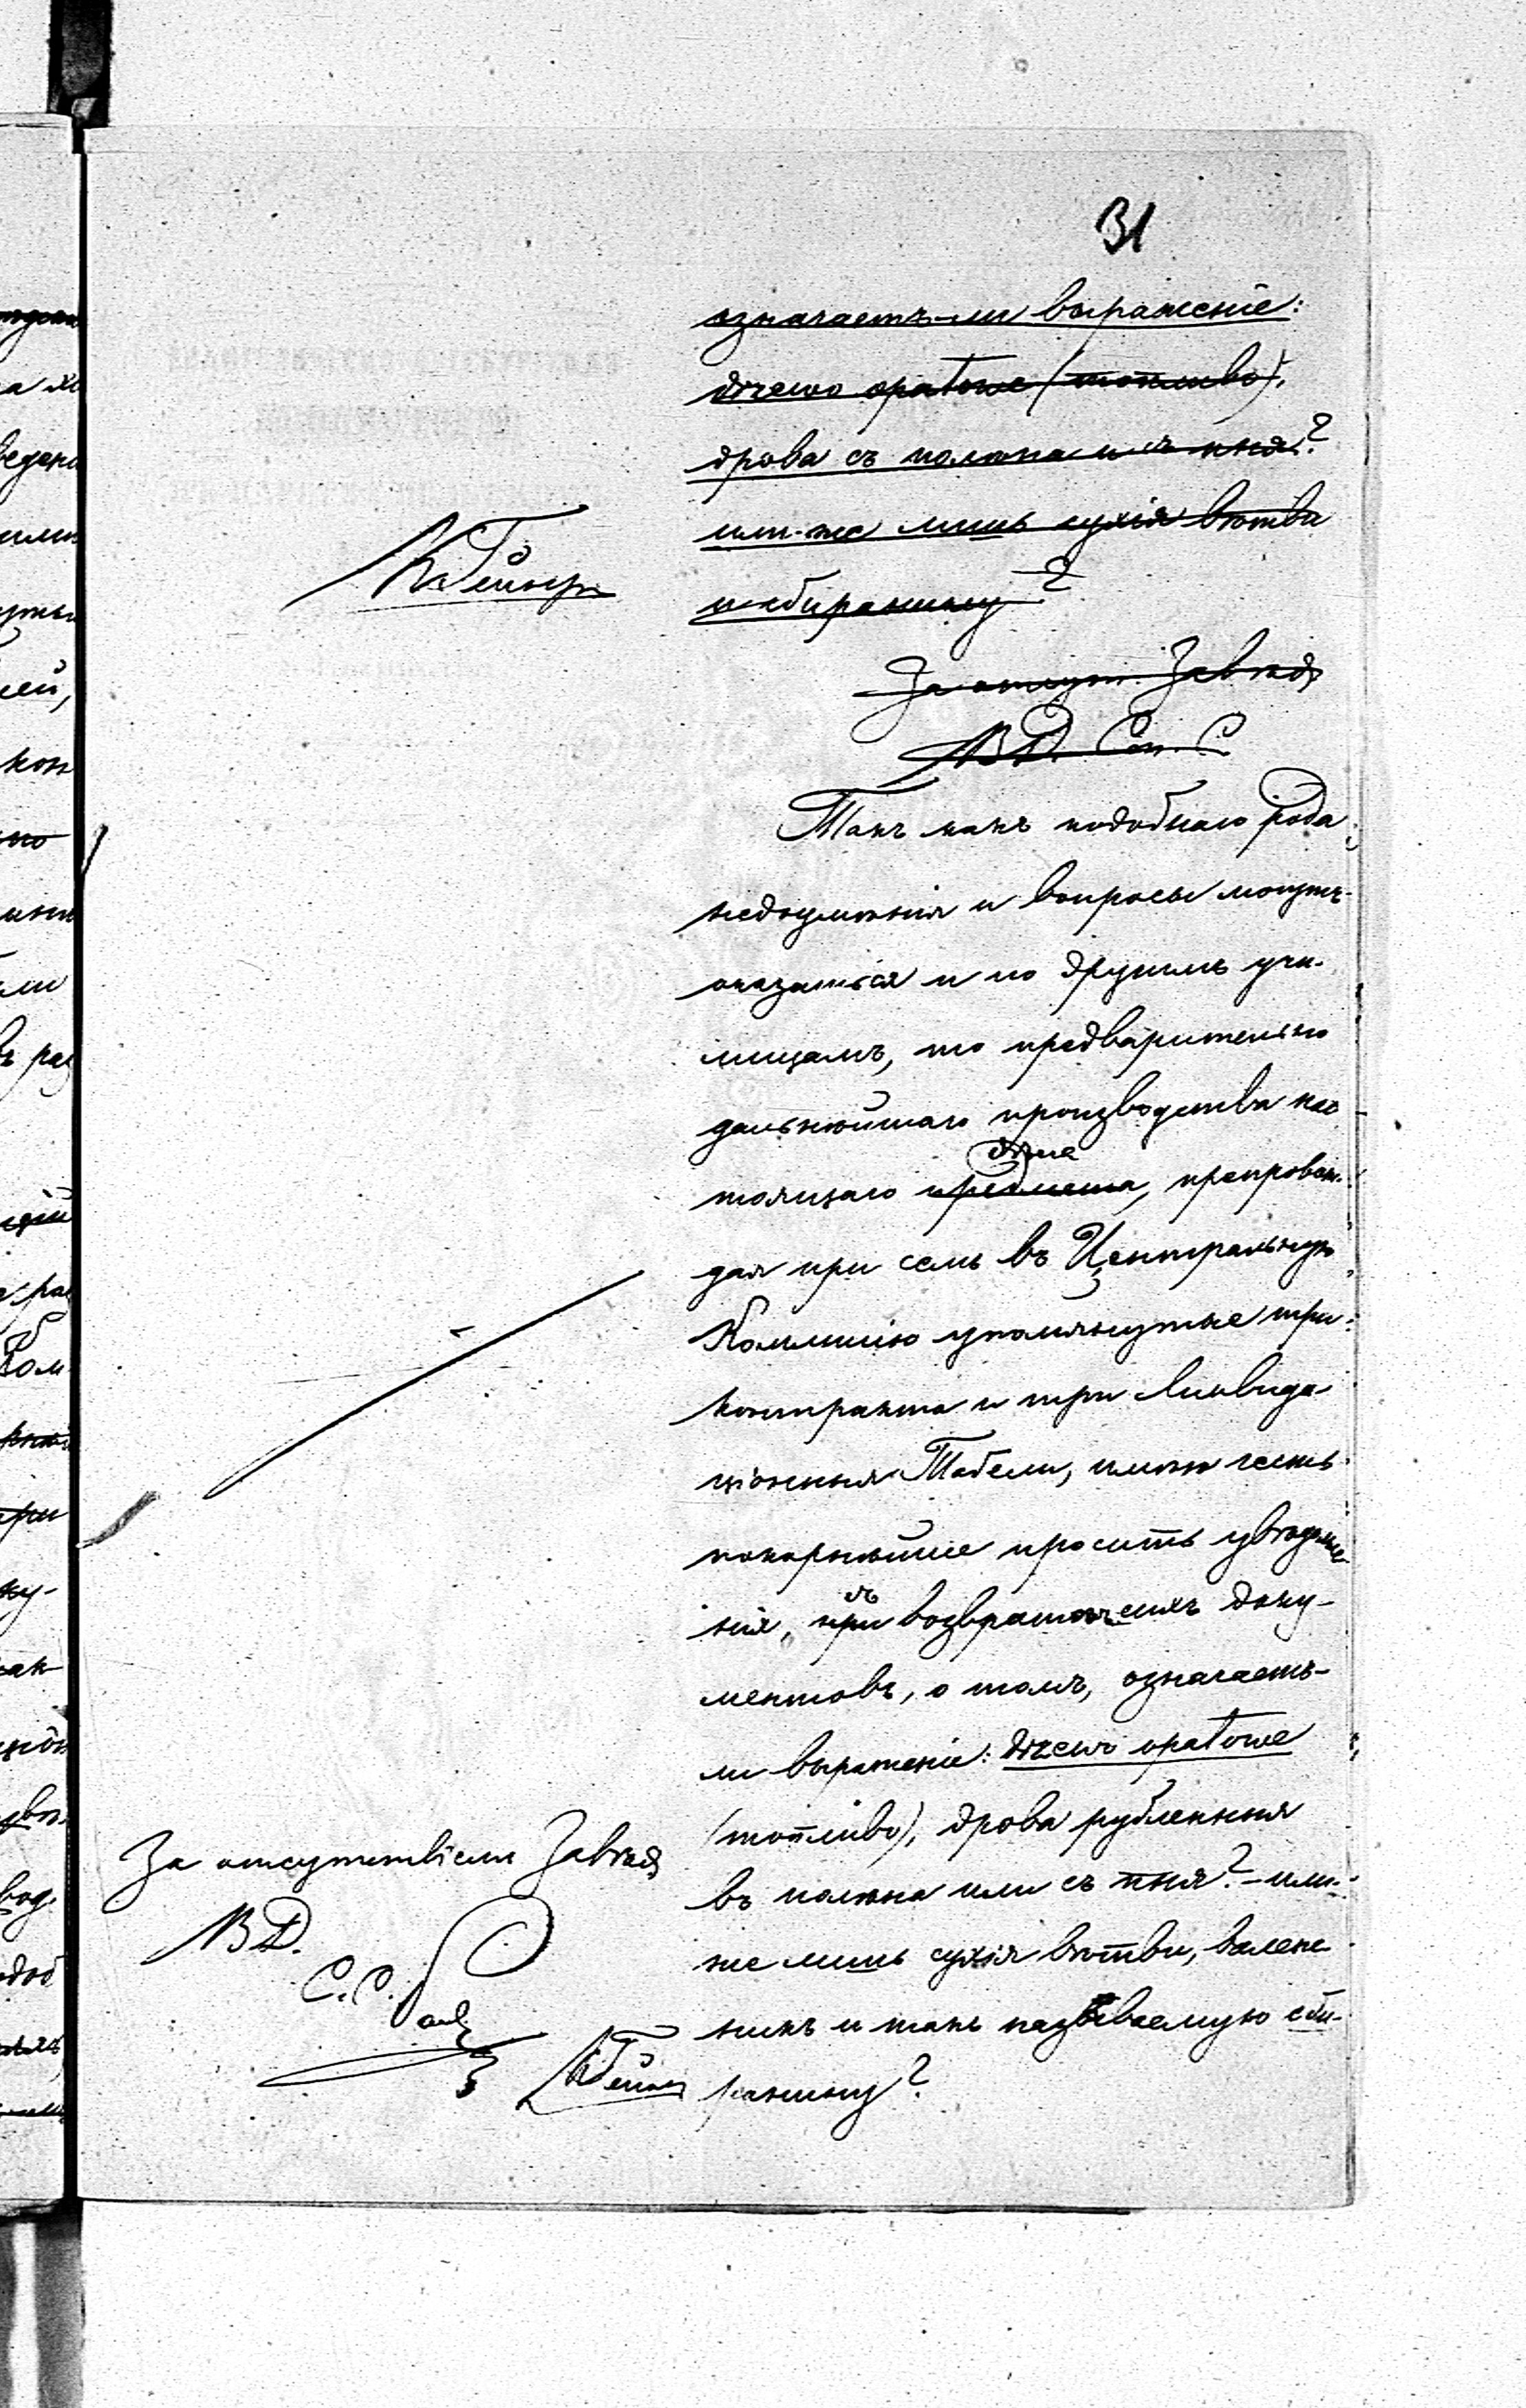 31
означаетъ-ли выраженіе:
drzewo opałowe (топливо),
дрова съ полѣна и съ пня?
или-же лишь сухія вѣтви
и збиранину?
За отсут. Завѣд
ВД. Сон. С
Такъ какъ подобнаго рода
недоумѣнія и вопросы могутъ
оказаться и по другимъ учи-
лищамъ, то предварительно
дальнѣйшаго производства нас
тоящаго предмета, препровож-
дѣла
дая при семъ въ Центральную
Коммисію упомянутые три
контракта и три Ликвида-
ціонныя Табели, имѣю честь
покорнѣйше просить увѣдомле
нія, при возвратѣ сихъ доку-
съ
ментовъ, о томъ, означаетъ-
ли выраженіе: drzewo opałowe
(топливо), дрова рубленныя
въ полѣна или съ пня? - или-
же лишь сухія вѣтви, валеж-
никъ и такъ называемую сби-
ранину?
За отсутствіемъ Завѣд
ВД.
С.С.